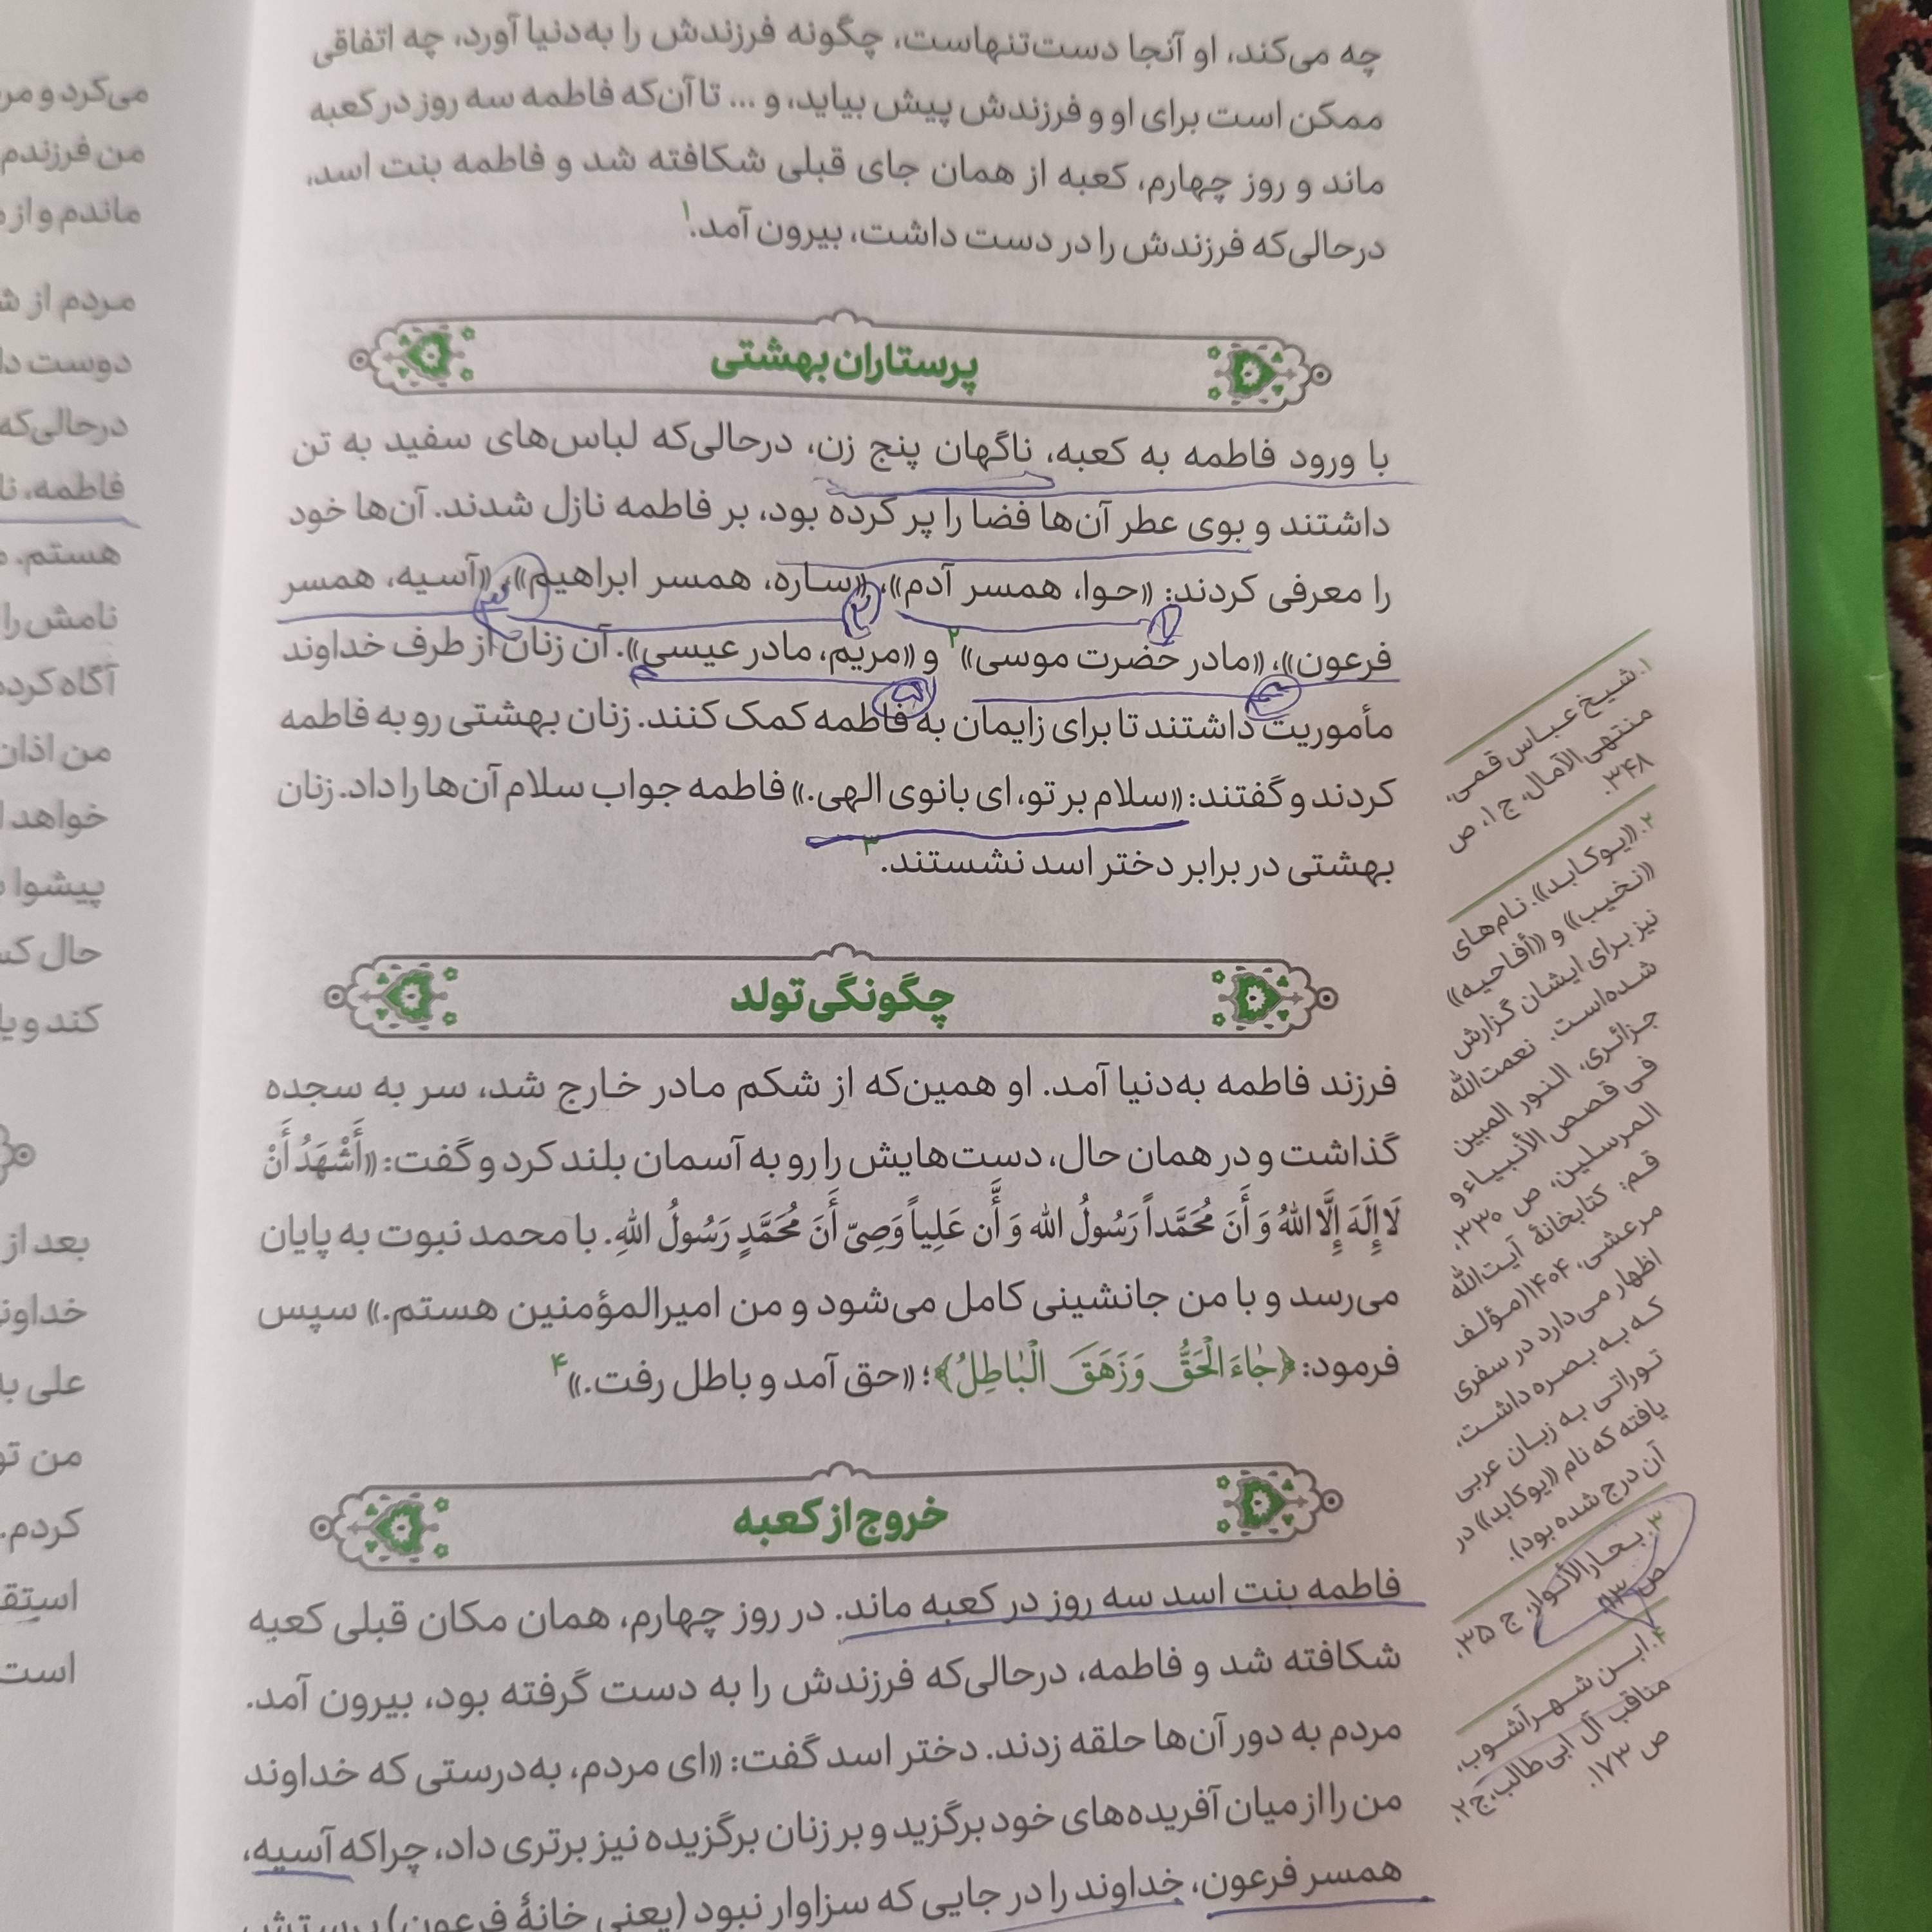 چه می‌کند، او آنجا دست‌تنهاست، چگونه فرزندش را به‌دنیا آورد، چه اتفاقی
ممکن است برای او و فرزندش پیش بیاید، و ... تا آن‌که فاطمه سه روز در کعبه
ماند و روز چهارم، کعبه از همان جای قبلی شکافته شد و فاطمه بنت اسد،
درحالی‌که فرزندش را در دست داشت، بیرون آمد.۱
پرستاران بهشتی
با ورود فاطمه به کعبه، ناگهان پنج زن، درحالی‌که لباس‌های سفید به تن
داشتند و بوی عطر آن‌ها فضا را پر کرده بود، بر فاطمه نازل شدند. آن‌ها خود
را معرفی کردند: «حوا، همسر آدم»، «ساره، همسر ابراهیم»، «آسیه، همسر
فرعون»، «مادر حضرت موسی»۲ و «مریم، مادر عیسی». آن زنان از طرف خداوند
مأموریت داشتند تا برای زایمان به فاطمه کمک کنند. زنان بهشتی رو به فاطمه
کردند و گفتند: «سلام بر تو، ای بانوی الهی.» فاطمه جواب سلام آن‌ها را داد. زنان
بهشتی در برابر دختر اسد نشستند.۳
چگونگی تولد
فرزند فاطمه به‌دنیا آمد. او همین‌که از شکم مادر خارج شد، سر به سجده
گذاشت و در همان حال، دست‌هایش را رو به آسمان بلند کرد و گفت: «أَشْهَدُ أَنْ
لَا إِلَهَ إِلَّا اللهُ وَ أَنَ مُحَمَّداً رَسُولُ الله وَ أَن عَلِیاً وَصِیّ أَنَ مُحَمَّدٍ رَسُولُ اللهِ. با محمد نبوت به پایان
می‌رسد و با من جانشینی کامل می‌شود و من امیرالمؤمنین هستم.» سپس
فرمود: ﴿جَاءَ الْحَقُّ وَزَهَقَ الْبَاطِلُ﴾؛ «حق آمد و باطل رفت.»۴
خروج از کعبه
فاطمه بنت اسد سه روز در کعبه ماند. در روز چهارم، همان مکان قبلی کعبه
شکافته شد و فاطمه، درحالی‌که فرزندش را به دست گرفته بود، بیرون آمد.
مردم به دور آن‌ها حلقه زدند. دختر اسد گفت: «ای مردم، به‌درستی که خداوند
من را از میان آفریده‌های خود برگزید و بر زنان برگزیده نیز برتری داد، چراکه آسیه،
همسر فرعون، خداوند را در جایی که سزاوار نبود (یعنی خانهٔ فرعون) پرستش
۱. شیخ عباس قمی،
منتهی الآمال، ج ۱، ص
۳۴۸.
۲. «یوکابد». نام‌های
«نخیب» و «أفاحیه»
نیز برای ایشان گزارش
شده‌است. نعمت‌الله
جزائری، النور المبین
فی قصص الأنبیاء و
المرسلین، ص ۲۳۰.
قم: کتابخانهٔ آیت‌الله
مرعشی، ۱۴۰۴ (مؤلف
اظهار می‌دارد در سفری
که به بصره داشت،
توراتی به زبان عربی
یافته که نام «یوکابد» در
آن درج شده بود).
۳. بحارالأنوار، ج ۳۵،
ص
۴. ابن شهرآشوب،
مناقب آل ابی‌طالب، ج۲،
ص ۱۷۳.
می‌کرد و
من فرزندم
ماندم و از
مردم از
دوست
درحالی‌که
فاطمه،
هستم.
نامش را
آگاه
من
خواهد
پیشوا
حال
کند و
بعد از
علی
من
کردم.
است